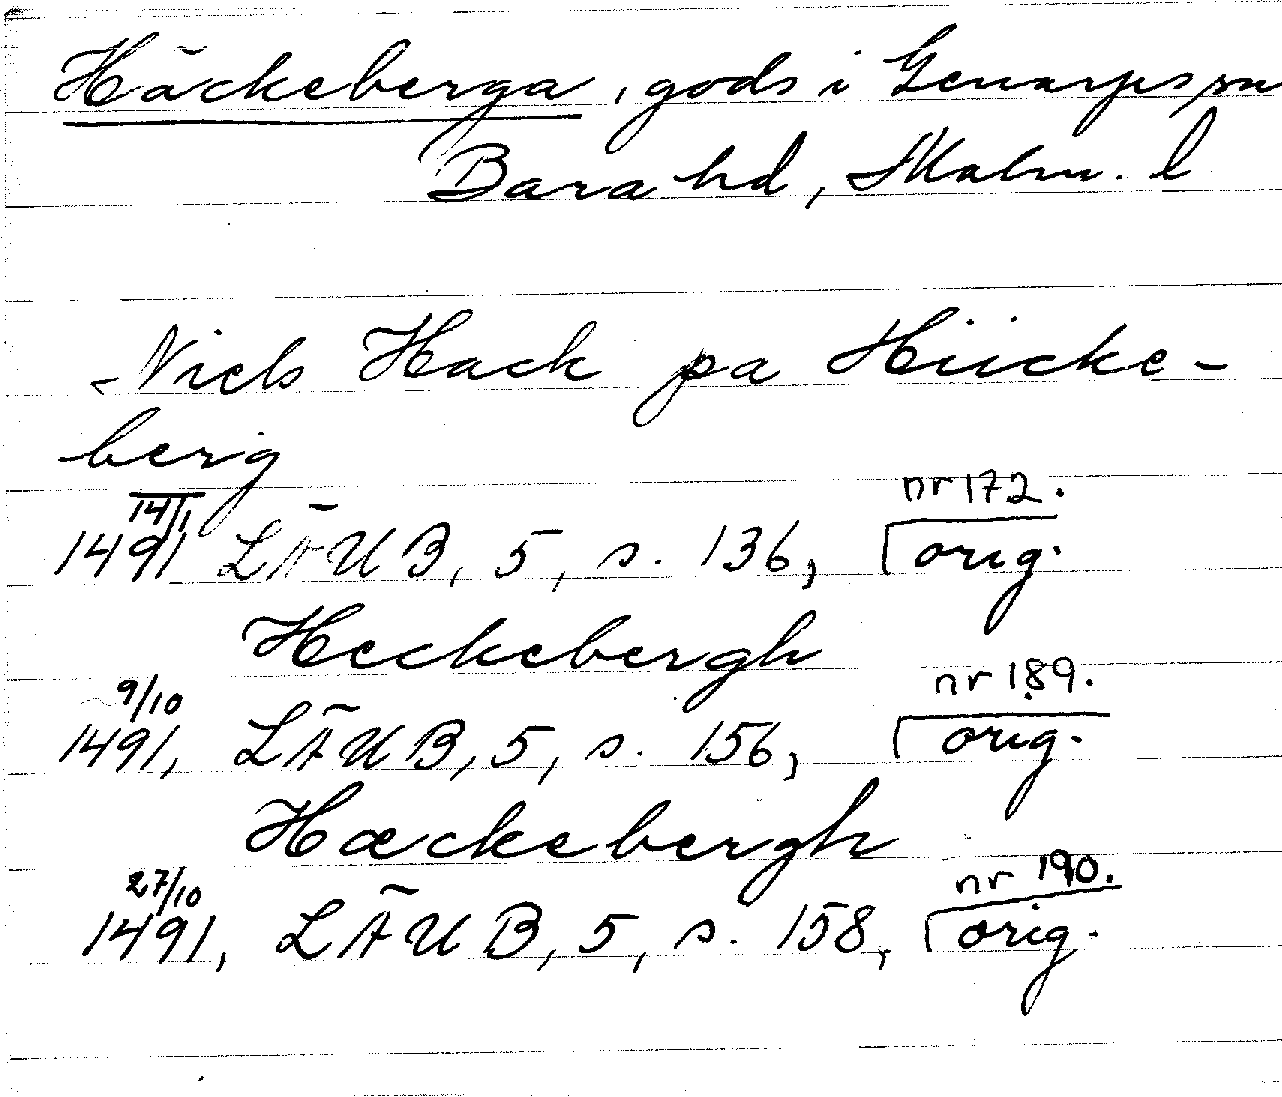 Häckeberga, gods i Genarps sn
Bara hd, Malm. l
Niels Hack pa Hiicke-
berg
14/1 nr 172.
1491 LÄUB, 5, s. 136, orig.
Heckebergh
9/10 nr 189.
1491, LÄUB, 5, s. 156, orig.
Hæckebergh
27/10 nr 190.
1491, LÄUB, 5, s. 158, orig.